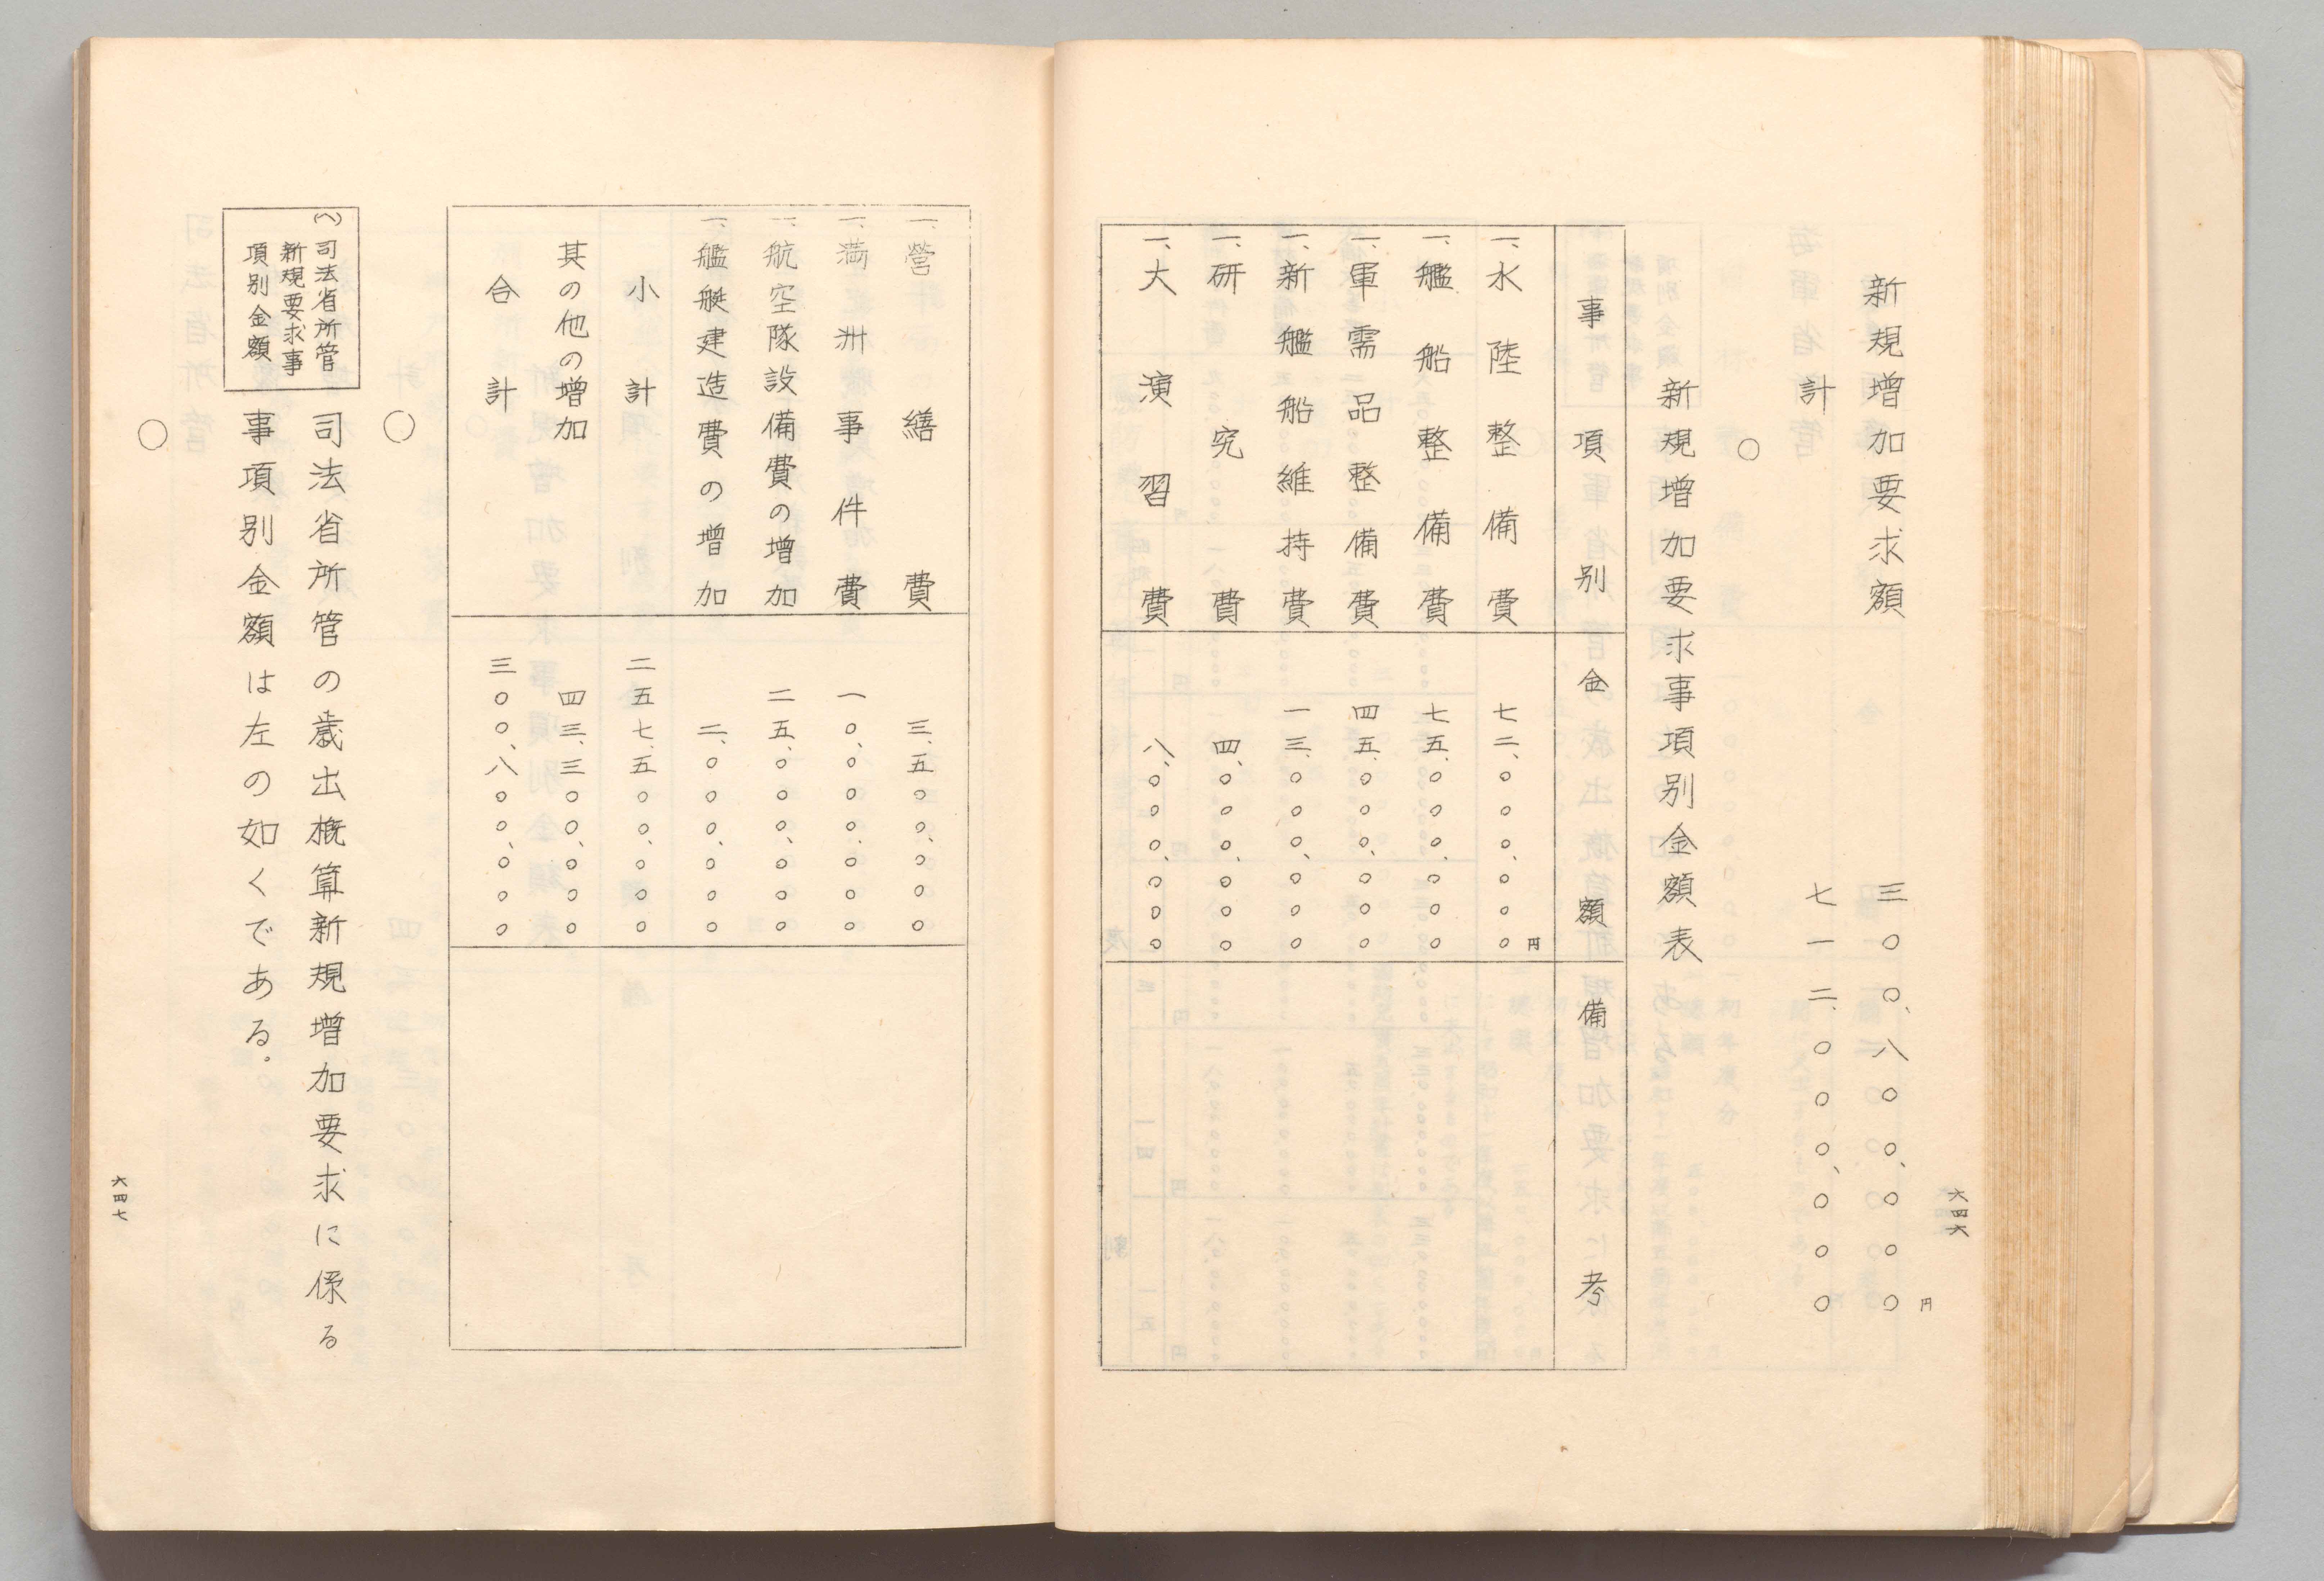 六四六
新規増加要求額 三〇〇、八〇〇、〇〇〇円
計 七一二、〇〇〇、〇〇〇
○
新規増加要求事項別金額表
事項別 金額 備考
一、水陸整備費 七二、〇〇〇、〇〇〇円
一、艦船整備費 七五、〇〇〇、〇〇〇
一、軍需品整備費 四五、〇〇〇、〇〇〇
一、新艦船維持費 一三、〇〇〇、〇〇〇
一、研究費 四、〇〇〇、〇〇〇
一、大演習費 八、〇〇〇、〇〇〇
一、營繕費 三、五〇〇、〇〇〇
一、満洲事件費 一〇、〇〇〇、〇〇〇
一、航空隊設備費の増加 二五、〇〇〇、〇〇〇
一、艦艇建造費の増加 二、〇〇〇、〇〇〇
小計 二五七、五〇〇、〇〇〇
其の他の増加 四三、三〇〇、〇〇〇
合計 三〇〇、八〇〇、〇〇〇
○
(ヘ)司法省所管
新規要求事
項別金額
司法省所管の歳出概算新規増加要求に係る
事項別金額は左の如くである。
○
六四七